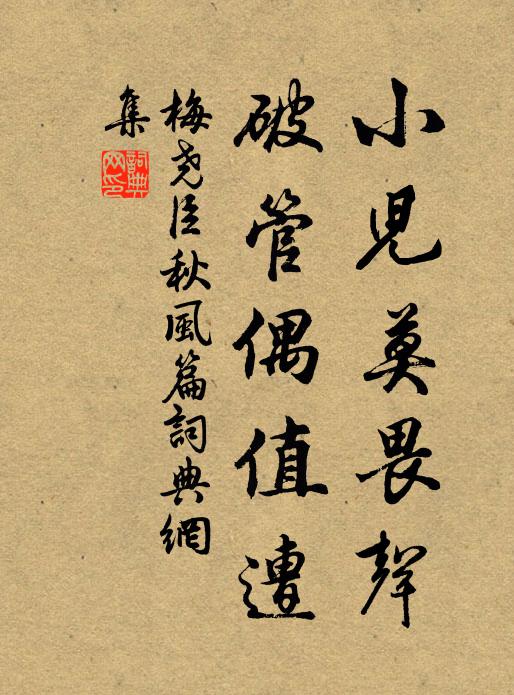 小兒莫畏聲
破管偶值遭
梅堯臣秋風篇詞典網
集
詞典
网印